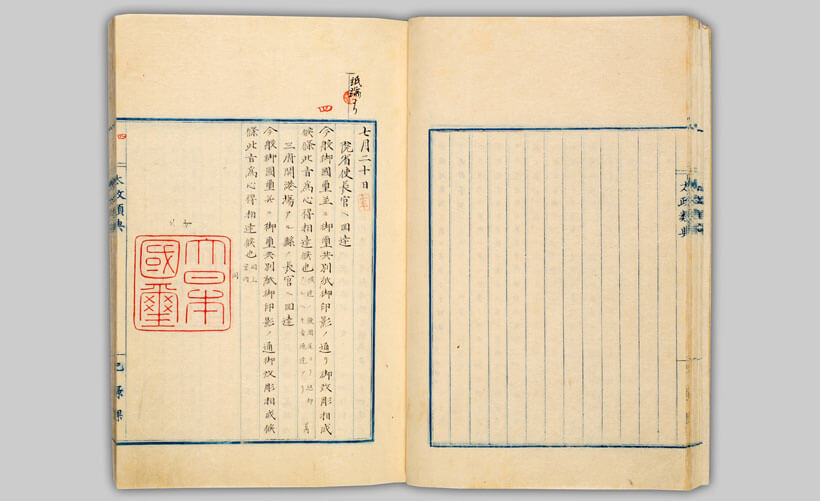 太政類典
四
七月二十日
院省使長官ヘ回達
今般御國璽並ニ御璽共別紙御印影ノ通リ御改彫相成
候條此旨爲心得相達候也
三府開港場アル縣ノ長官ヘ回達
今般御國璽並ニ御璽共別紙御印影ノ通御改彫相成候
條此旨爲心得相達候也
大日本
國璽
四
太政類典
記録課